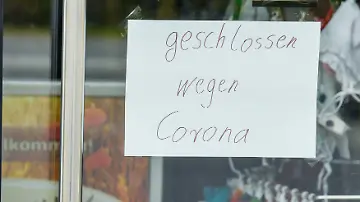 geschlossen
wegen
Corona
lkommen